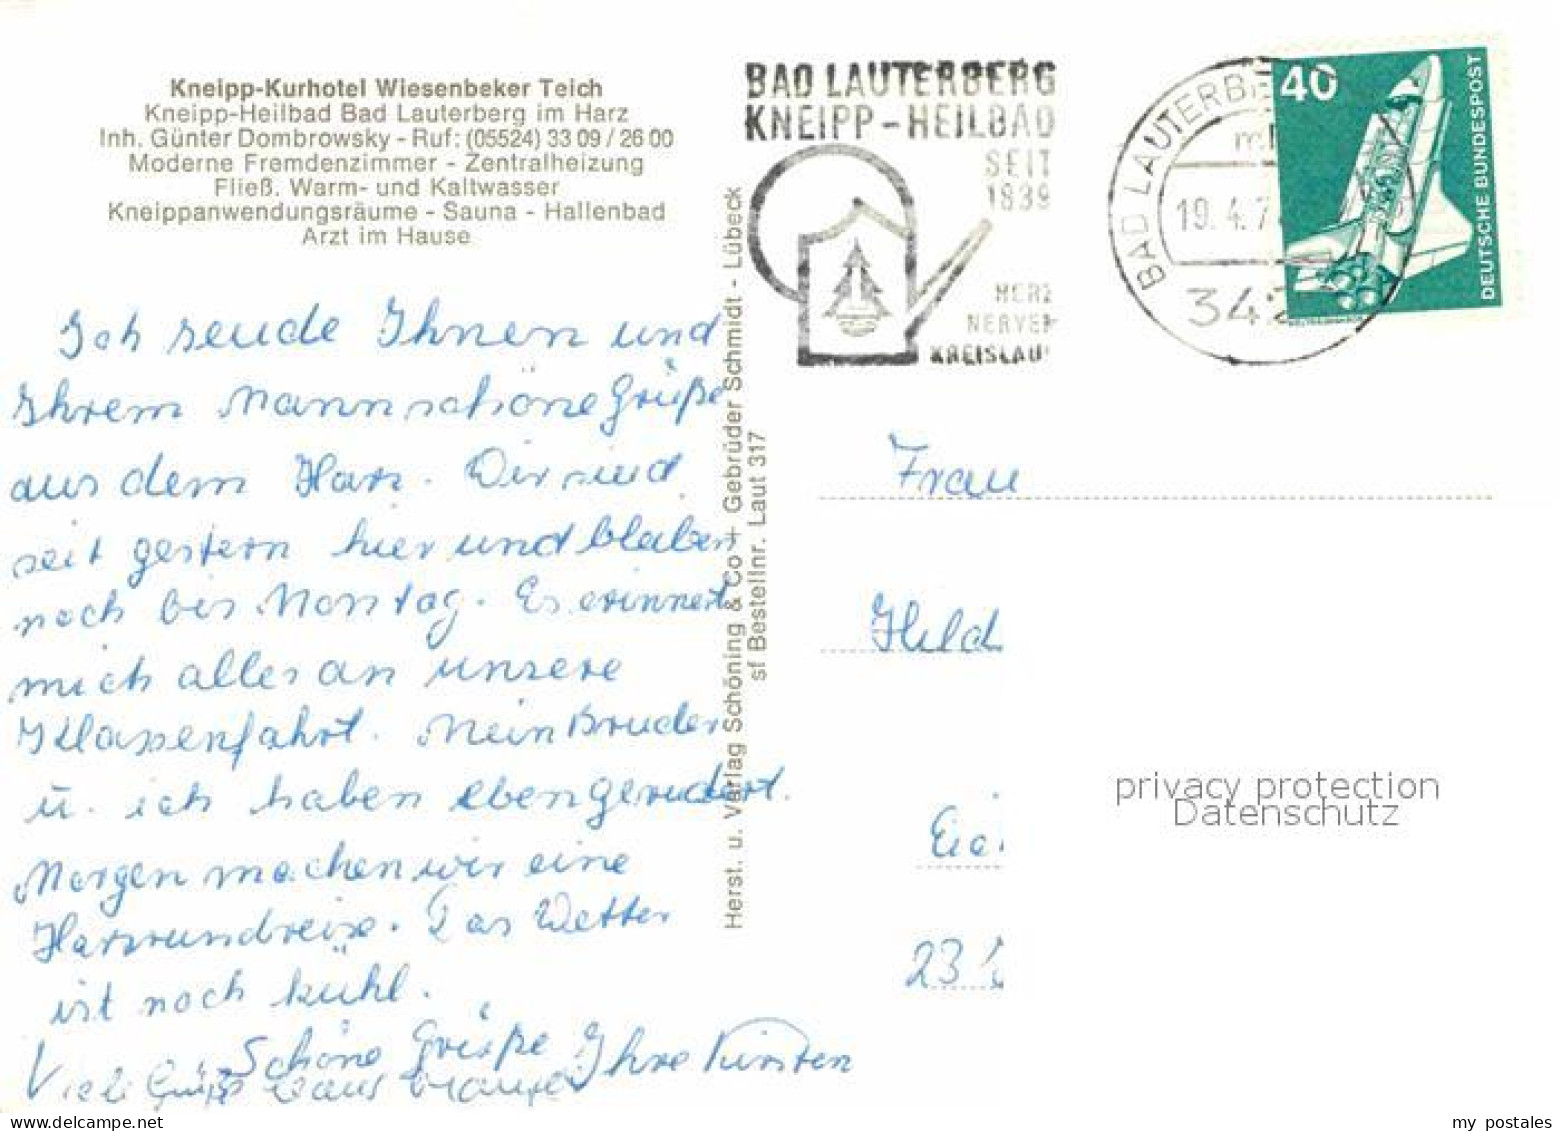 Kneipp-Kurhotel Wiesenbeker Teich
Kneipp-Heilbad Bad Lauterberg im Harz
Inh. Günter Dombrowsky - Ruf: (05524) 33 09 / 26 00
Moderne Fremdenzimmer - Zentralheizung
Fließ. Warm- und Kaltwasser
Kneippanwendungsräume - Sauna - Hallenbad
Arzt im Hause
Ich sende Ihnen und
Ihrem Mann schöne Grüße
aus dem Harz. Wir sind
seit gestern hier und bleiben
noch bis Montag. Es erinnert
mich alles an unsere
Klassenfahrt. Mein Bruder
u. ich haben eben gerudert.
Morgen machen wir eine
Harzrundreise. Das Wetter
ist noch kühl.
Schöne Grüße Ihre Kirsten
Viele Grüße
Herst. u. Verlag Schöning & Co + Gebrüder Schmidt - Lübeck
sf Bestellnr. Laut 317
BAD LAUTERBERG
KNEIPP-HEILBAD
SEIT
1839
HERZ
NERVEN
KREISLAUF
BAD LAUTERBE
19.4.7
342
40
DEUTSCHE BUNDESPOST
Frau
Hild
Eic
23
privacy protection
Datenschutz
my postales